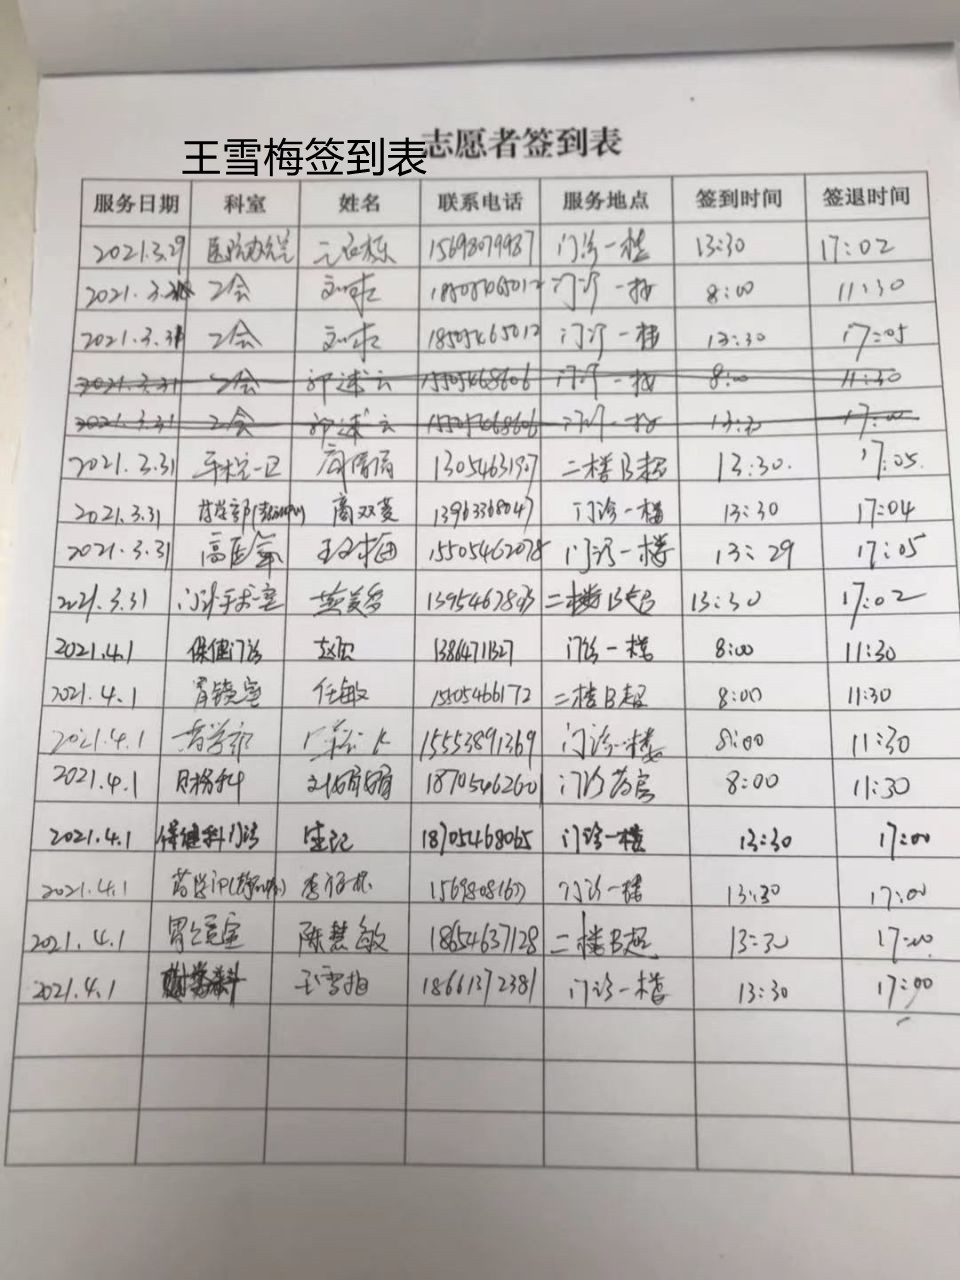 王雪梅签到表
志愿者签到表
服务日期 科室 姓名 联系电话 服务地点 签到时间 签退时间
2021.3.29 医院办公室 15698079987 门诊一楼 13:30 17:02
2021.3.31 工会 门诊一楼 8:00 11:30
2021.3.31 工会 18505465012 门诊一楼 13:30 17:05
2021.3.31 工会 15505468606 门诊一楼 8:00 11:30
2021.3.31 工会 15505468606 门诊一楼 13:30 17:00
2021.3.31 二楼B超 13:30. 17:05.
2021.3.31 商双菱 13963368047 门诊一楼 13:30 17:04
2021.3.31 15505462078 门诊一楼 13:29 17:05
2021.3.31 门诊手术室 二楼B超 13:30 17:02
2021.4.1 保健门诊 门诊一楼 8:00 11:30
2021.4.1 胃镜室 任敏 15505466172 二楼B超 8:00 11:30
2021.4.1 药学部 15553891369 门诊一楼 8:00 11:30
2021.4.1 财务科 18705462601 8:00 11:30
2021.4.1 保健科门诊 18705468065 门诊一楼 13:30 17:00
2021.4.1 门诊一楼 13:30 17:00
2021.4.1 胃镜室 陈慧敏 18654637128 二楼B超 13:30 17:00
2021.4.1 王雪梅 18661372381 门诊一楼 13:30 17:00